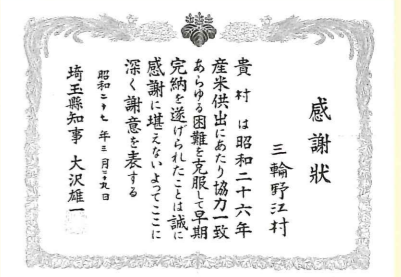 感謝狀
三輪野江村
貴村は昭和二十六年
産米供出にあたり協力一致
あらゆる困難を克服して早期
完納を遂げられたことは誠に
感謝に堪えないよってここに
深く謝意を表する
昭和二十七年三月二十九日
埼玉縣知事 大沢雄一